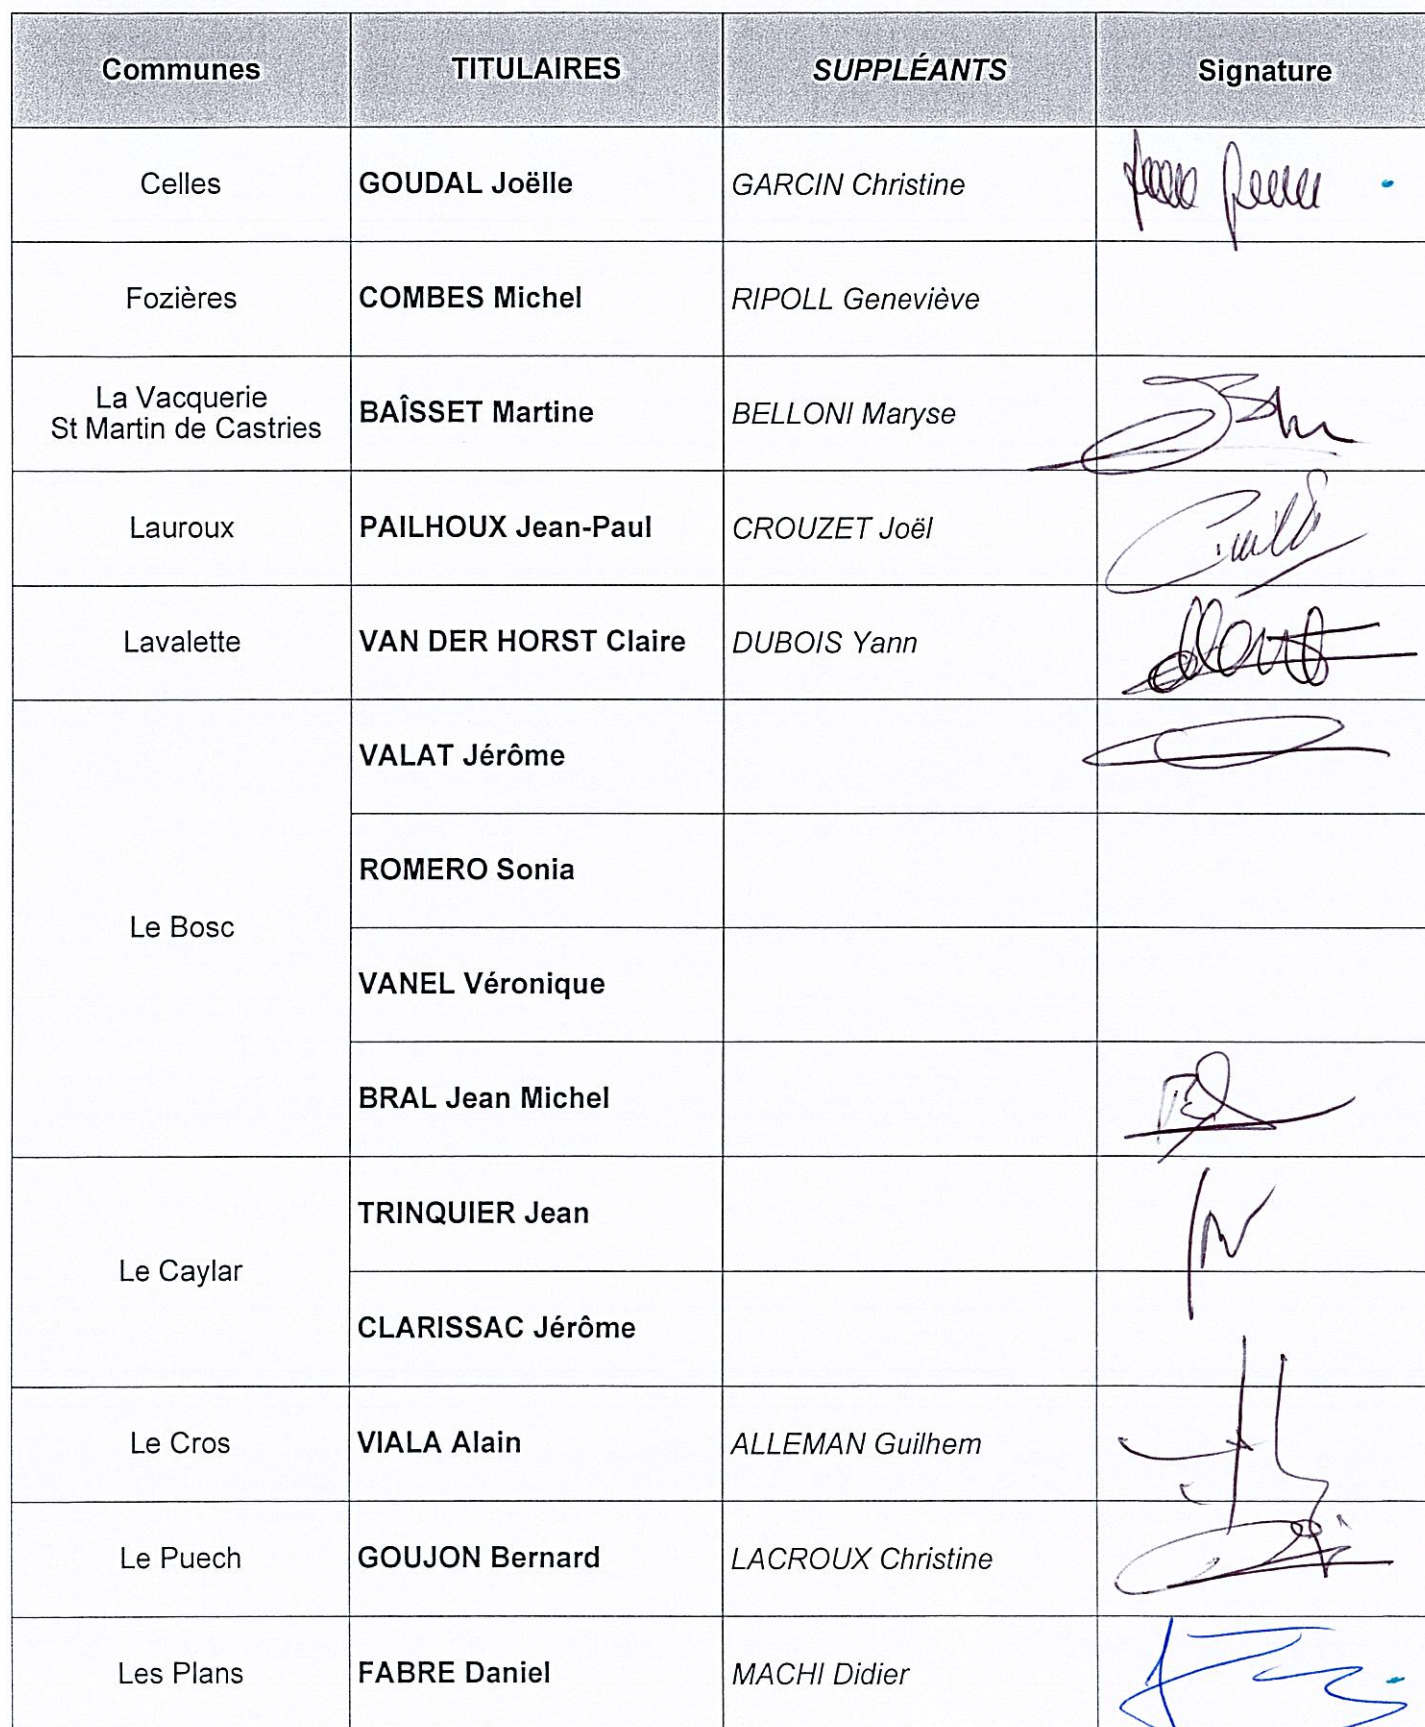 Communes TITULAIRES SUPPLÉANTS Signature
Celles GOUDAL Joëlle GARCIN Christine
Fozières COMBES Michel RIPOLL Geneviève
La Vacquerie
St Martin de Castries BAÎSSET Martine BELLONI Maryse
Lauroux PAILHOUX Jean-Paul CROUZET Joël
Lavalette VAN DER HORST Claire DUBOIS Yann
Le Bosc VALAT Jérôme
ROMERO Sonia
VANEL Véronique
BRAL Jean Michel
Le Caylar TRINQUIER Jean
CLARISSAC Jérôme
Le Cros VIALA Alain ALLEMAN Guilhem
Le Puech GOUJON Bernard LACROUX Christine
Les Plans FABRE Daniel MACHI Didier